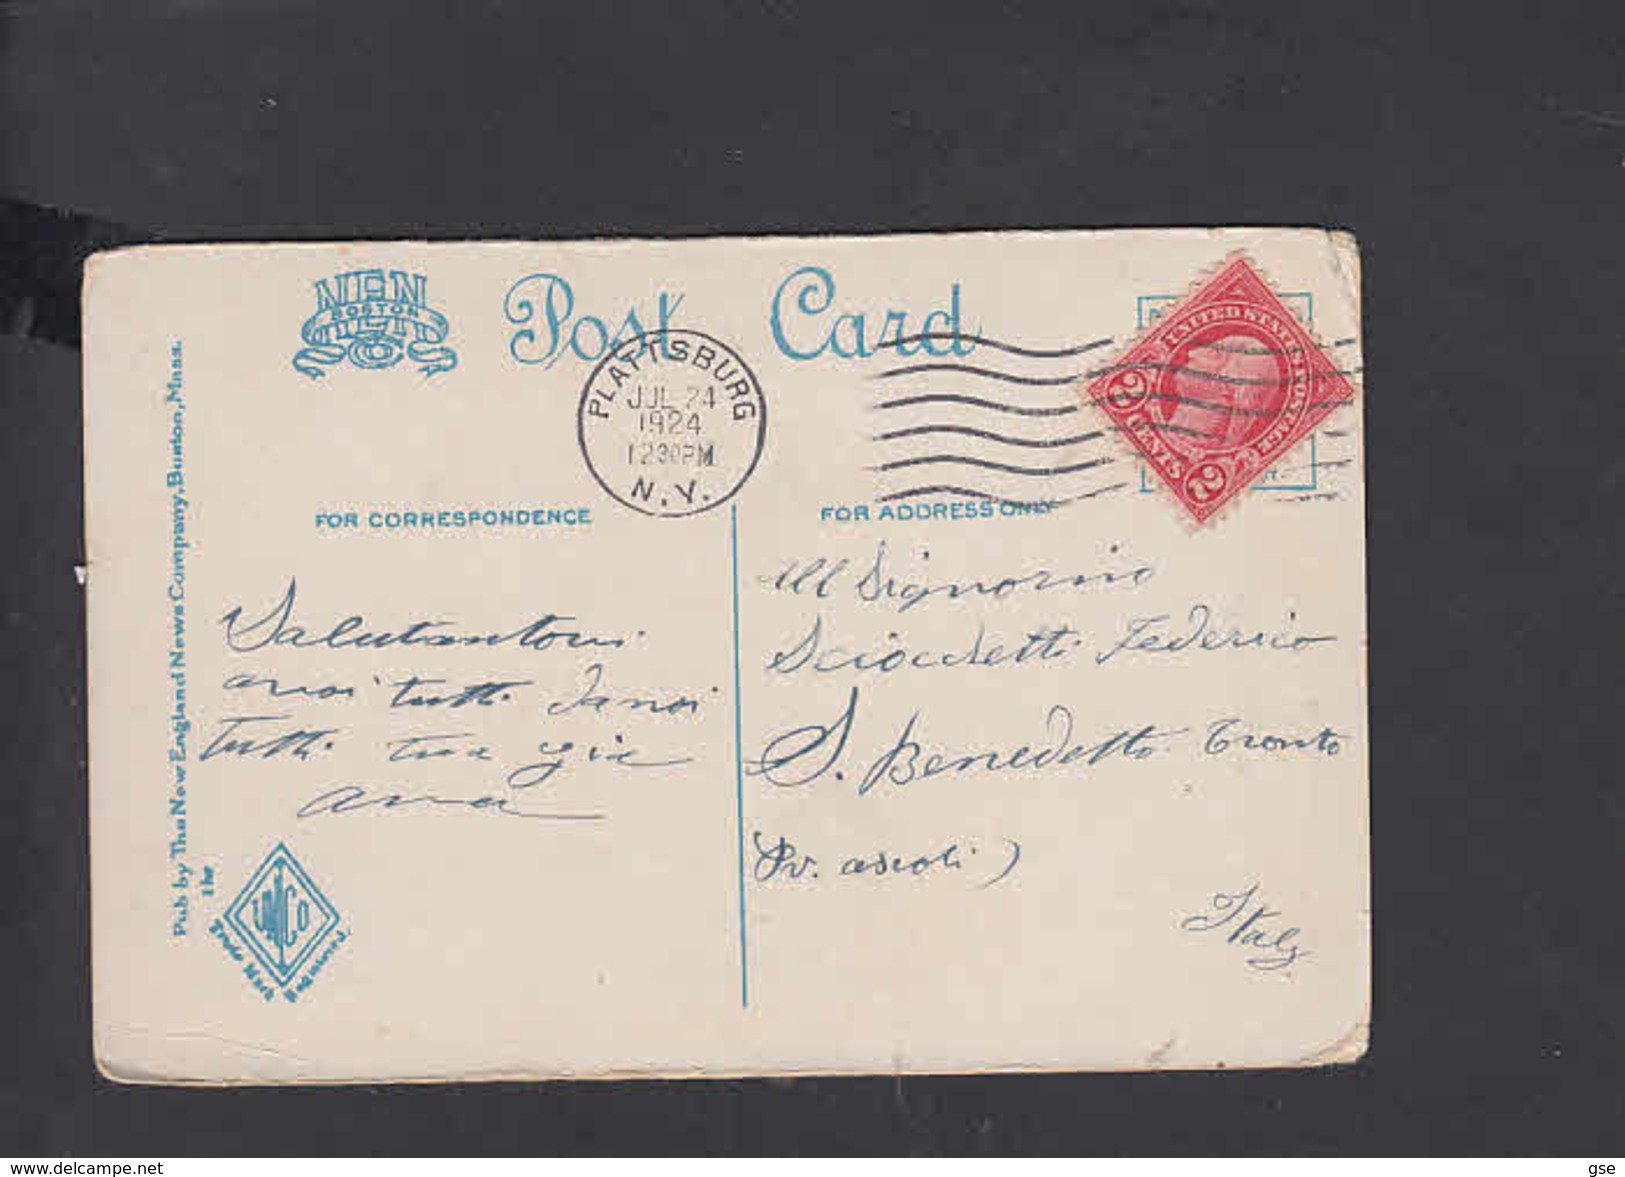 Post Card
BOSTON
PLATTSBURG
JUL 24
1924
1230PM
N.Y.
UNITED STATES
2 CENTS 2
FOR CORRESPONDENCE
FOR ADDRESS ONLY
Salutantovi
avoi tutti da noi
tutti tua zia
anna
All Signorino
Sciocchetti Federico
S. Benedetto Tronto
(Pv. ascoli)
Italy
Pub by The New England News Company, Buston, Mass.
the
Trade Mark Registered.
www.delcampe.net
gse